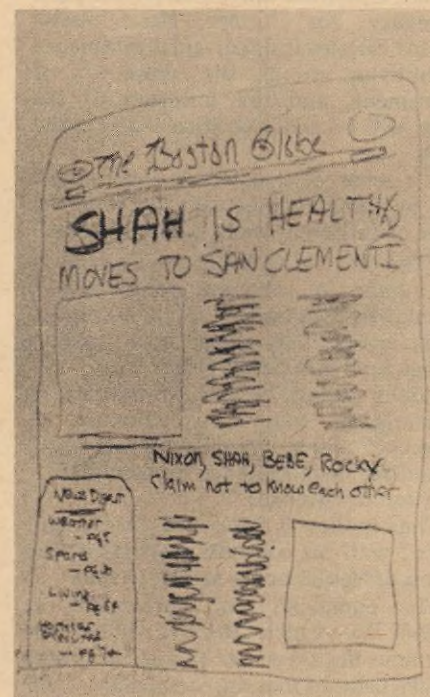 The Boston Globe
SHAH IS HEALTHY
MOVES TO SAN CLEMENTE
Nixon, SHAH, BEBE, ROCKY
Claim not to know each other
News Digest
Weather
Sports
Living